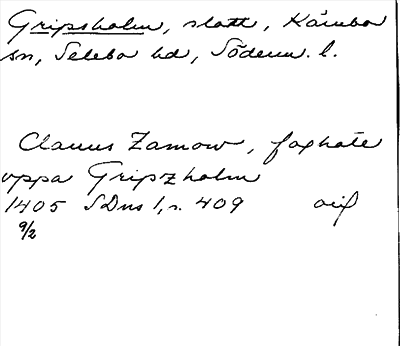 Gripsholm, slott, Kärnbo
sn, Selebo hd, Söderm. l.
Clauus Zamow, foghate
vppa Gripzholm
1405 SDns 1, s. 409
9/2